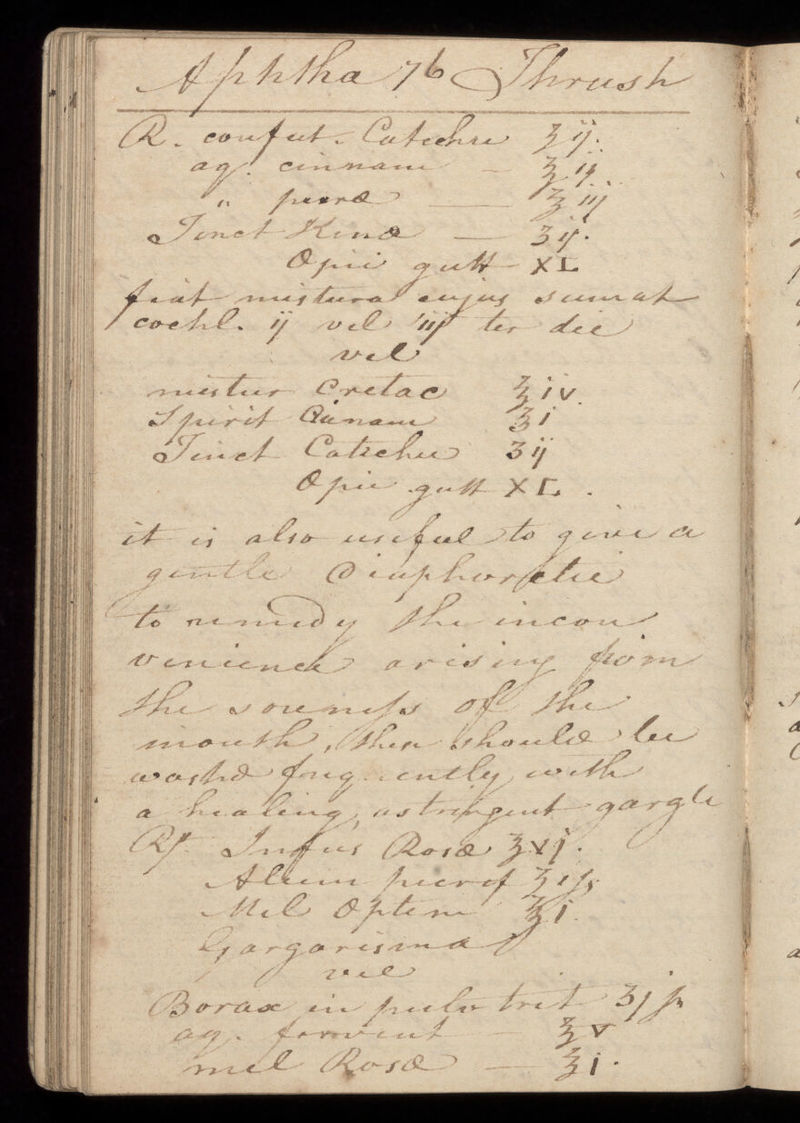 Aphtha 76 Thrush
R. confect. Catechu ℥ij.
aq. cinnam — ℥ij.
" puræ — ℥iij
Tinct Kinæ — ʒij.
Opii gutt XL
fiat mistura cujus sumat
cochl. ij vel iij ter die
vel
mistur Cretac ℥iv.
Spirit Cinnam ℥i
Tinct Catechu ʒij
Opii gutt XL.
it is also useful to give a
gentle Diaphoretic
to remedy the incon
venience arising from
the soreness of the
mouth, then should be
washd frequently with
a healing, astringent gargle
Rx Infus Rosæ ℥vj.
Alum purif
Mel Optim ℥i.
Gargarisma
vel
Borax in pulv trit ʒjss
aq. fervent — ℥v
mel Rosæ — ℥i.